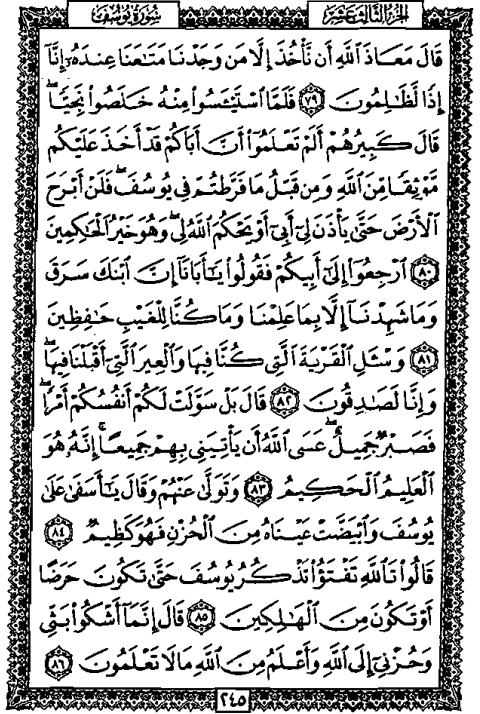 سُورَةُ يُوسُفَ
الجزء الثالث عشر
قَالَ مَعَاذَ ٱللَّهِ أَن نَّأْخُذَ إِلَّا مَن وَجَدْنَا مَتَٰعَنَا عِندَهُۥٓ إِنَّآ
إِذًا لَّظَٰلِمُونَ ٧٩ فَلَمَّا ٱسْتَيْـَٔسُوا۟ مِنْهُ خَلَصُوا۟ نَجِيًّا ۖ
قَالَ كَبِيرُهُمْ أَلَمْ تَعْلَمُوٓا۟ أَنَّ أَبَاكُمْ قَدْ أَخَذَ عَلَيْكُم
مَّوْثِقًا مِّنَ ٱللَّهِ وَمِن قَبْلُ مَا فَرَّطتُمْ فِى يُوسُفَ ۖ فَلَنْ أَبْرَحَ
ٱلْأَرْضَ حَتَّىٰ يَأْذَنَ لِىٓ أَبِىٓ أَوْ يَحْكُمَ ٱللَّهُ لِى ۖ وَهُوَ خَيْرُ ٱلْحَٰكِمِينَ
٨٠ ٱرْجِعُوٓا۟ إِلَىٰٓ أَبِيكُمْ فَقُولُوا۟ يَٰٓأَبَانَآ إِنَّ ٱبْنَكَ سَرَقَ
وَمَا شَهِدْنَآ إِلَّا بِمَا عَلِمْنَا وَمَا كُنَّا لِلْغَيْبِ حَٰفِظِينَ
٨١ وَسْـَٔلِ ٱلْقَرْيَةَ ٱلَّتِى كُنَّا فِيهَا وَٱلْعِيرَ ٱلَّتِىٓ أَقْبَلْنَا فِيهَا ۖ
وَإِنَّا لَصَٰدِقُونَ ٨٢ قَالَ بَلْ سَوَّلَتْ لَكُمْ أَنفُسُكُمْ أَمْرًا ۖ
فَصَبْرٌ جَمِيلٌ ۖ عَسَى ٱللَّهُ أَن يَأْتِيَنِى بِهِمْ جَمِيعًا ۚ إِنَّهُۥ هُوَ
ٱلْعَلِيمُ ٱلْحَكِيمُ ٨٣ وَتَوَلَّىٰ عَنْهُمْ وَقَالَ يَٰٓأَسَفَىٰ عَلَىٰ
يُوسُفَ وَٱبْيَضَّتْ عَيْنَاهُ مِنَ ٱلْحُزْنِ فَهُوَ كَظِيمٌ ٨٤
قَالُوا۟ تَٱللَّهِ تَفْتَؤُا۟ تَذْكُرُ يُوسُفَ حَتَّىٰ تَكُونَ حَرَضًا
أَوْ تَكُونَ مِنَ ٱلْهَٰلِكِينَ ٨٥ قَالَ إِنَّمَآ أَشْكُوا۟ بَثِّى
وَحُزْنِىٓ إِلَى ٱللَّهِ وَأَعْلَمُ مِنَ ٱللَّهِ مَا لَا تَعْلَمُونَ ٨٦
٢٤٥